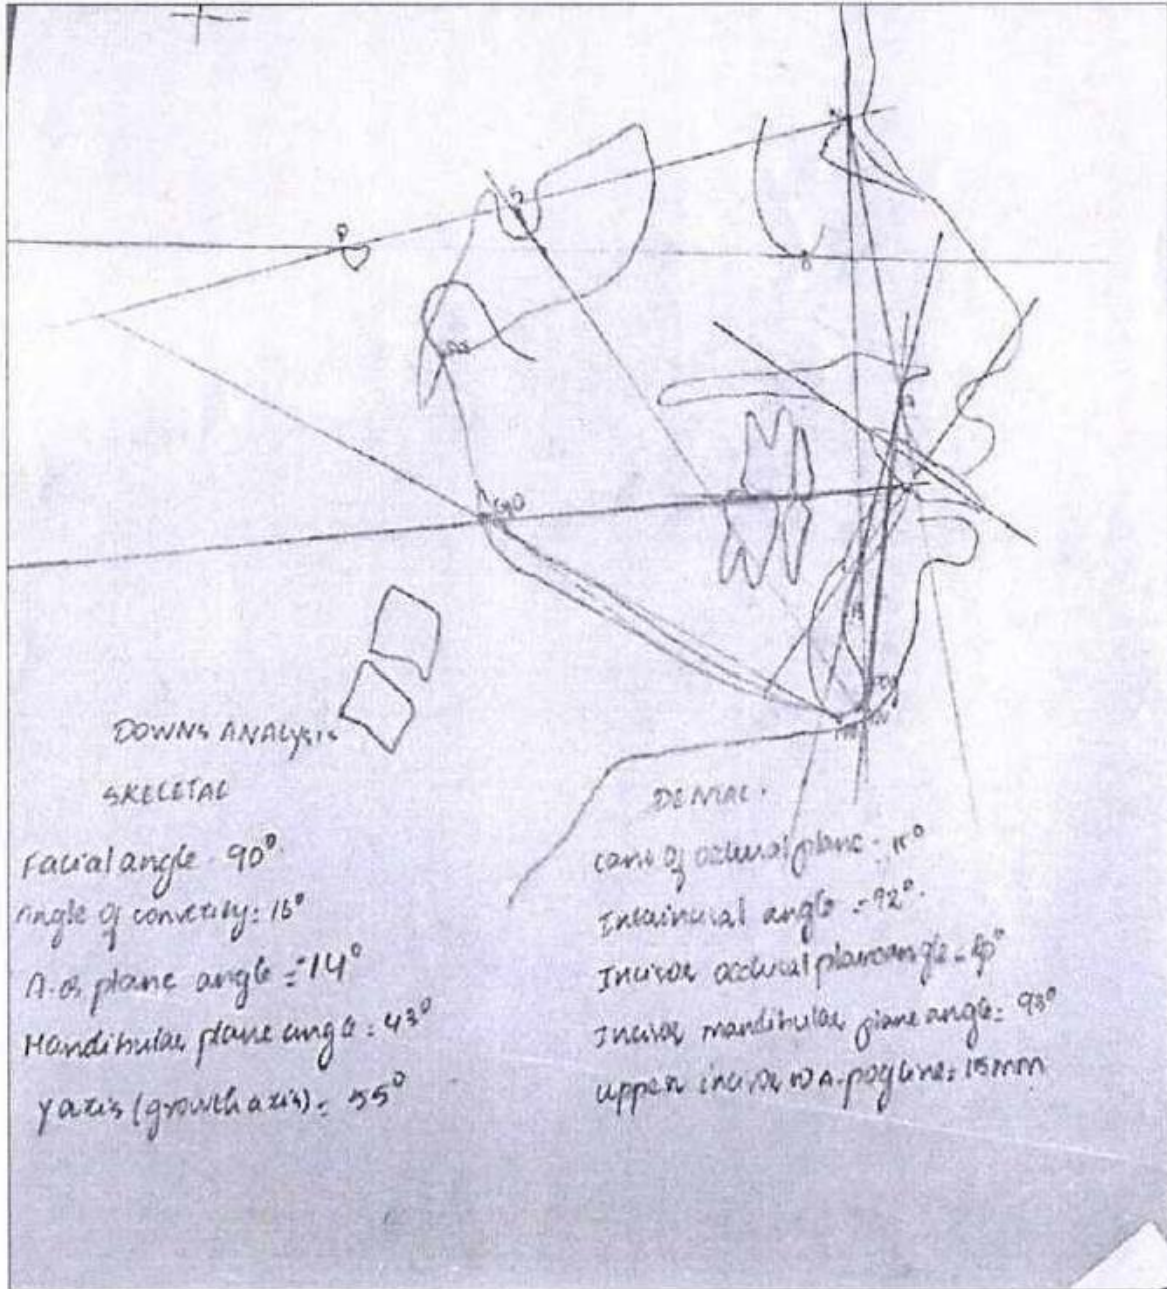 P
S
GO
DOWNS ANALYSIS
SKELETAL
Facial angle - 90°
Angle of convexity: 16°
A.B plane angle = -14°
Mandibular plane angle: 43°
Y axis (growth axis) = 55°
DENTAL.
Cant of occlusal plane -
Interincisal angle = 92°.
Incisor occlusal plane angle =
Incisor mandibular plane angle = 93°
upper incisor to A.pog line = 15mm